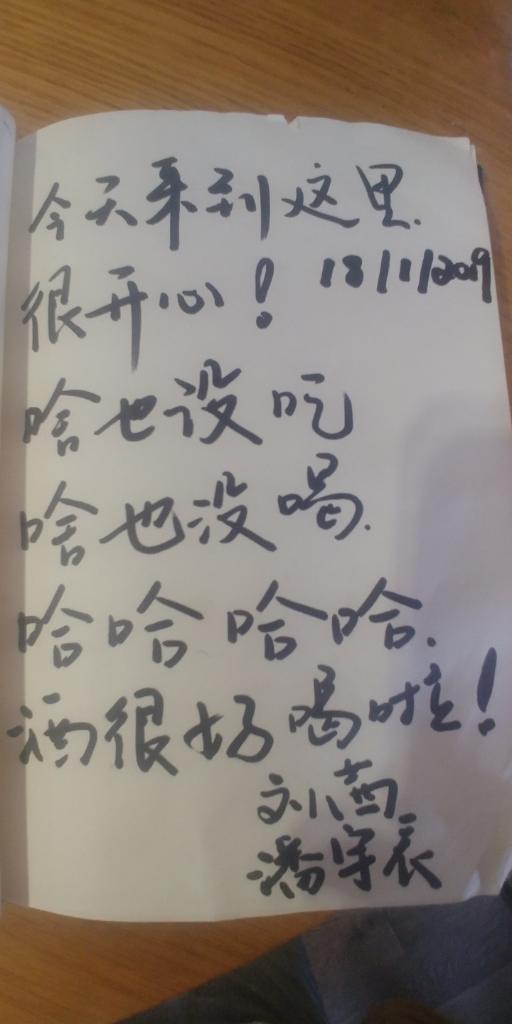 今天来到这里.
很开心! 18/1/2019
啥也没吃
啥也没喝.
哈哈哈哈.
酒很好喝啦!
刘茜
潘宇辰